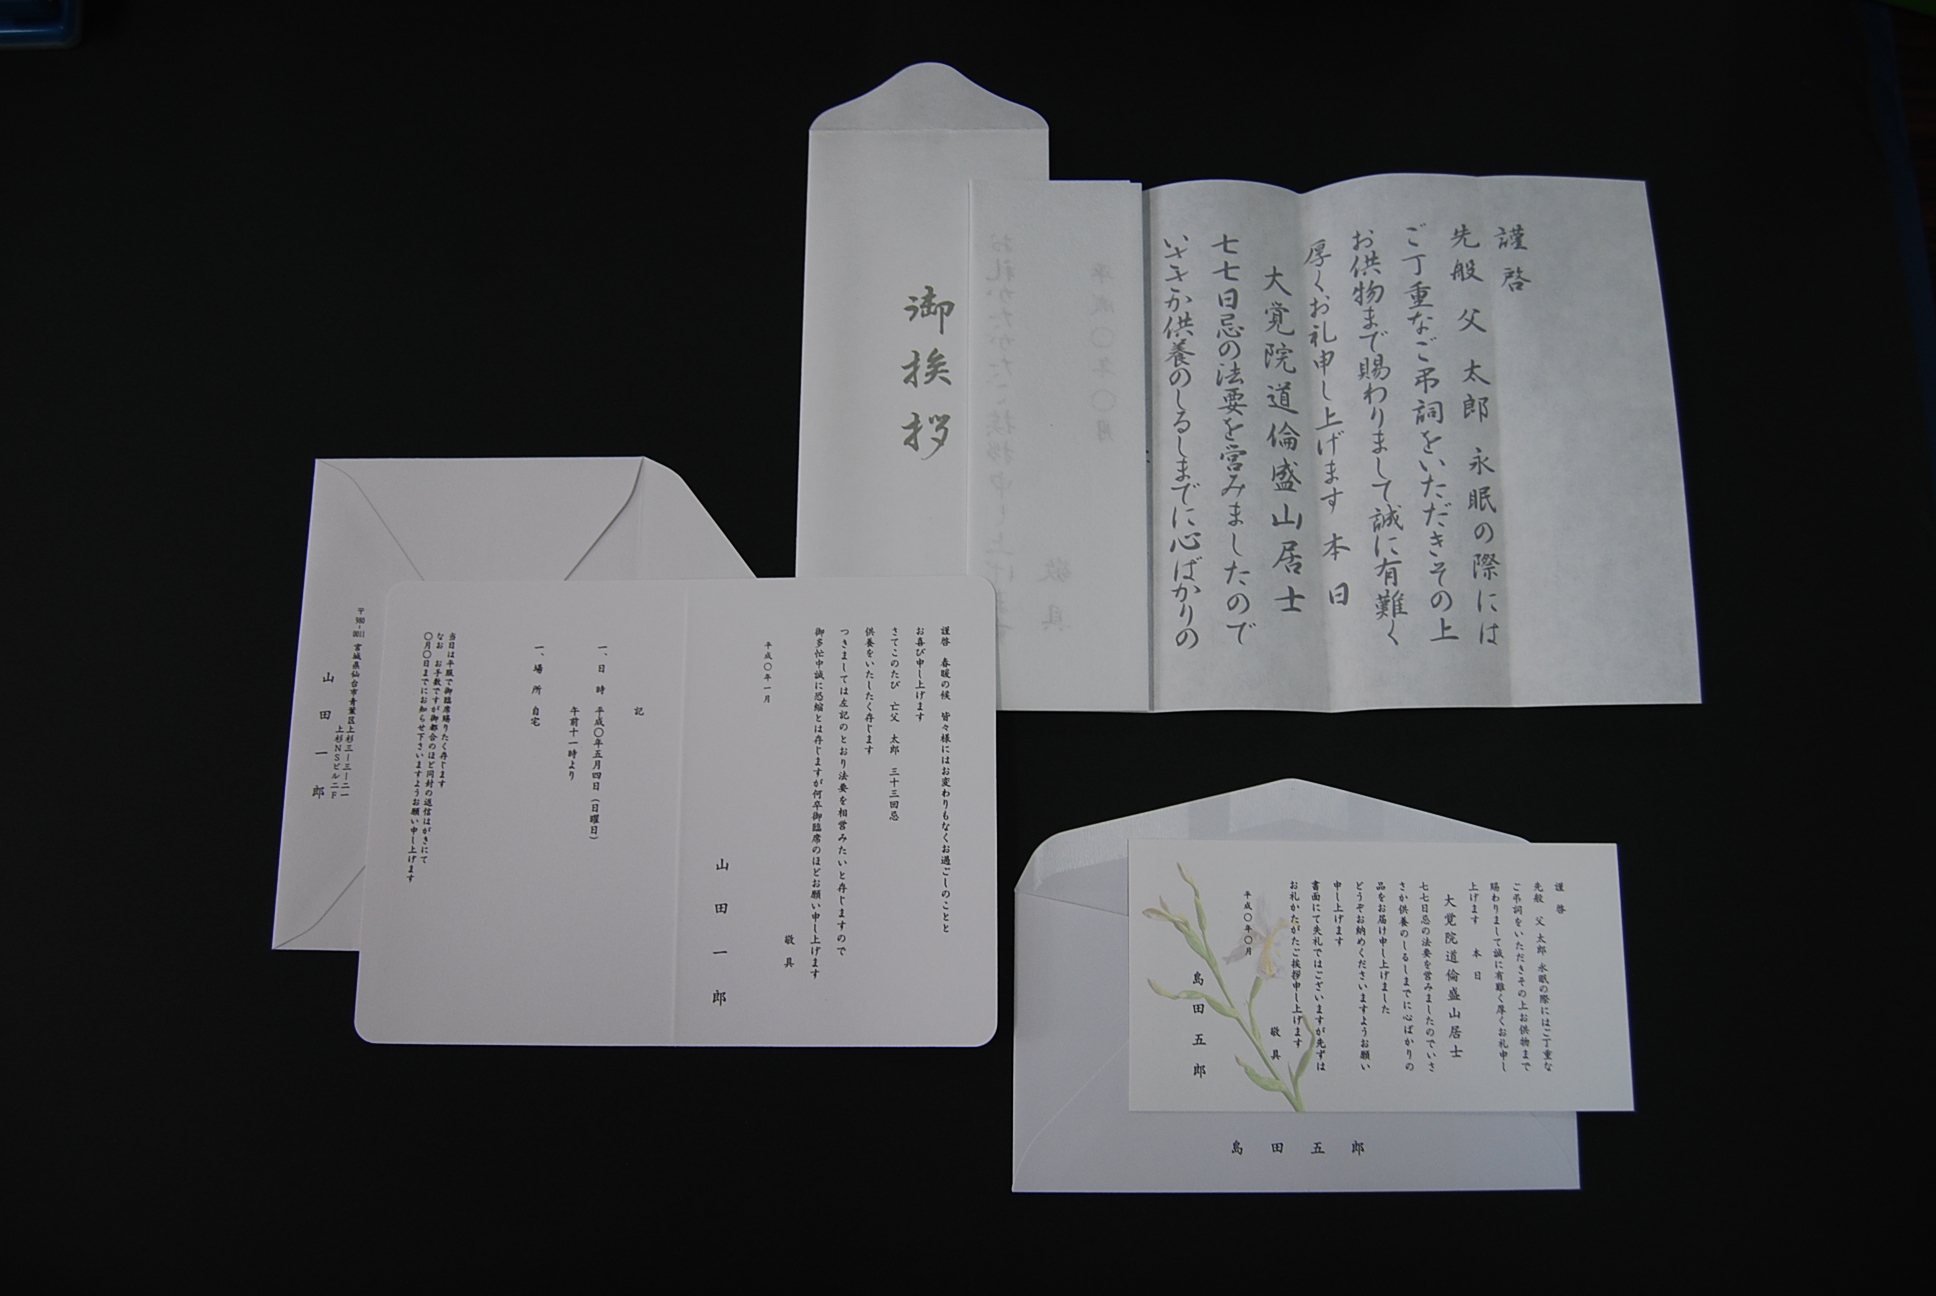 御挨拶
謹啓
先般 父 太郎 永眠の際には
ご丁重なご弔詞をいただきその上
お供物まで賜わりまして誠に有難く
厚くお礼申し上げます 本日
大覚院道倫盛山居士
七七日忌の法要を営みましたので
いささか供養のしるしまでに心ばかりの
平成〇年〇月
敬具
お礼かたがたご挨拶申し上げます
謹啓 春暖の候 皆々様にはお変わりもなくお過ごしのことと
お喜び申し上げます
さてこのたび 亡父 太郎 三十三回忌
供養をいたしたく存じます
つきましては左記のとおり法要を相営みたいと存じますので
御多忙中誠に恐縮とは存じますが何卒御臨席のほどお願い申し上げます
敬具
平成〇年一月
山田一郎
記
一、日時 平成〇年五月四日(日曜日)
午前十一時より
一、場所 自宅
当日は平服で御臨席賜りたく存じます
なお お手数ですが御都合のほど同封の返信はがきにて
〇月〇日までにお知らせ下さいますようお願い申し上げます
〒980-0011 宮城県仙台市青葉区上杉三-三-二一
上杉NSビル二F
山田一郎
謹啓
先般 父 太郎 永眠の際にはご丁重な
ご弔詞をいただきその上お供物まで
賜わりまして誠に有難く厚くお礼申し
上げます 本日
大覚院道倫盛山居士
七七日忌の法要を営みましたのでいさ
さか供養のしるしまでに心ばかりの
品をお届け申し上げました
どうぞお納めくださいますようお願い
申し上げます
書面にて失礼ではございますが先ずは
お礼かたがたご挨拶申し上げます
敬具
平成〇年〇月
島田五郎
島田五郎